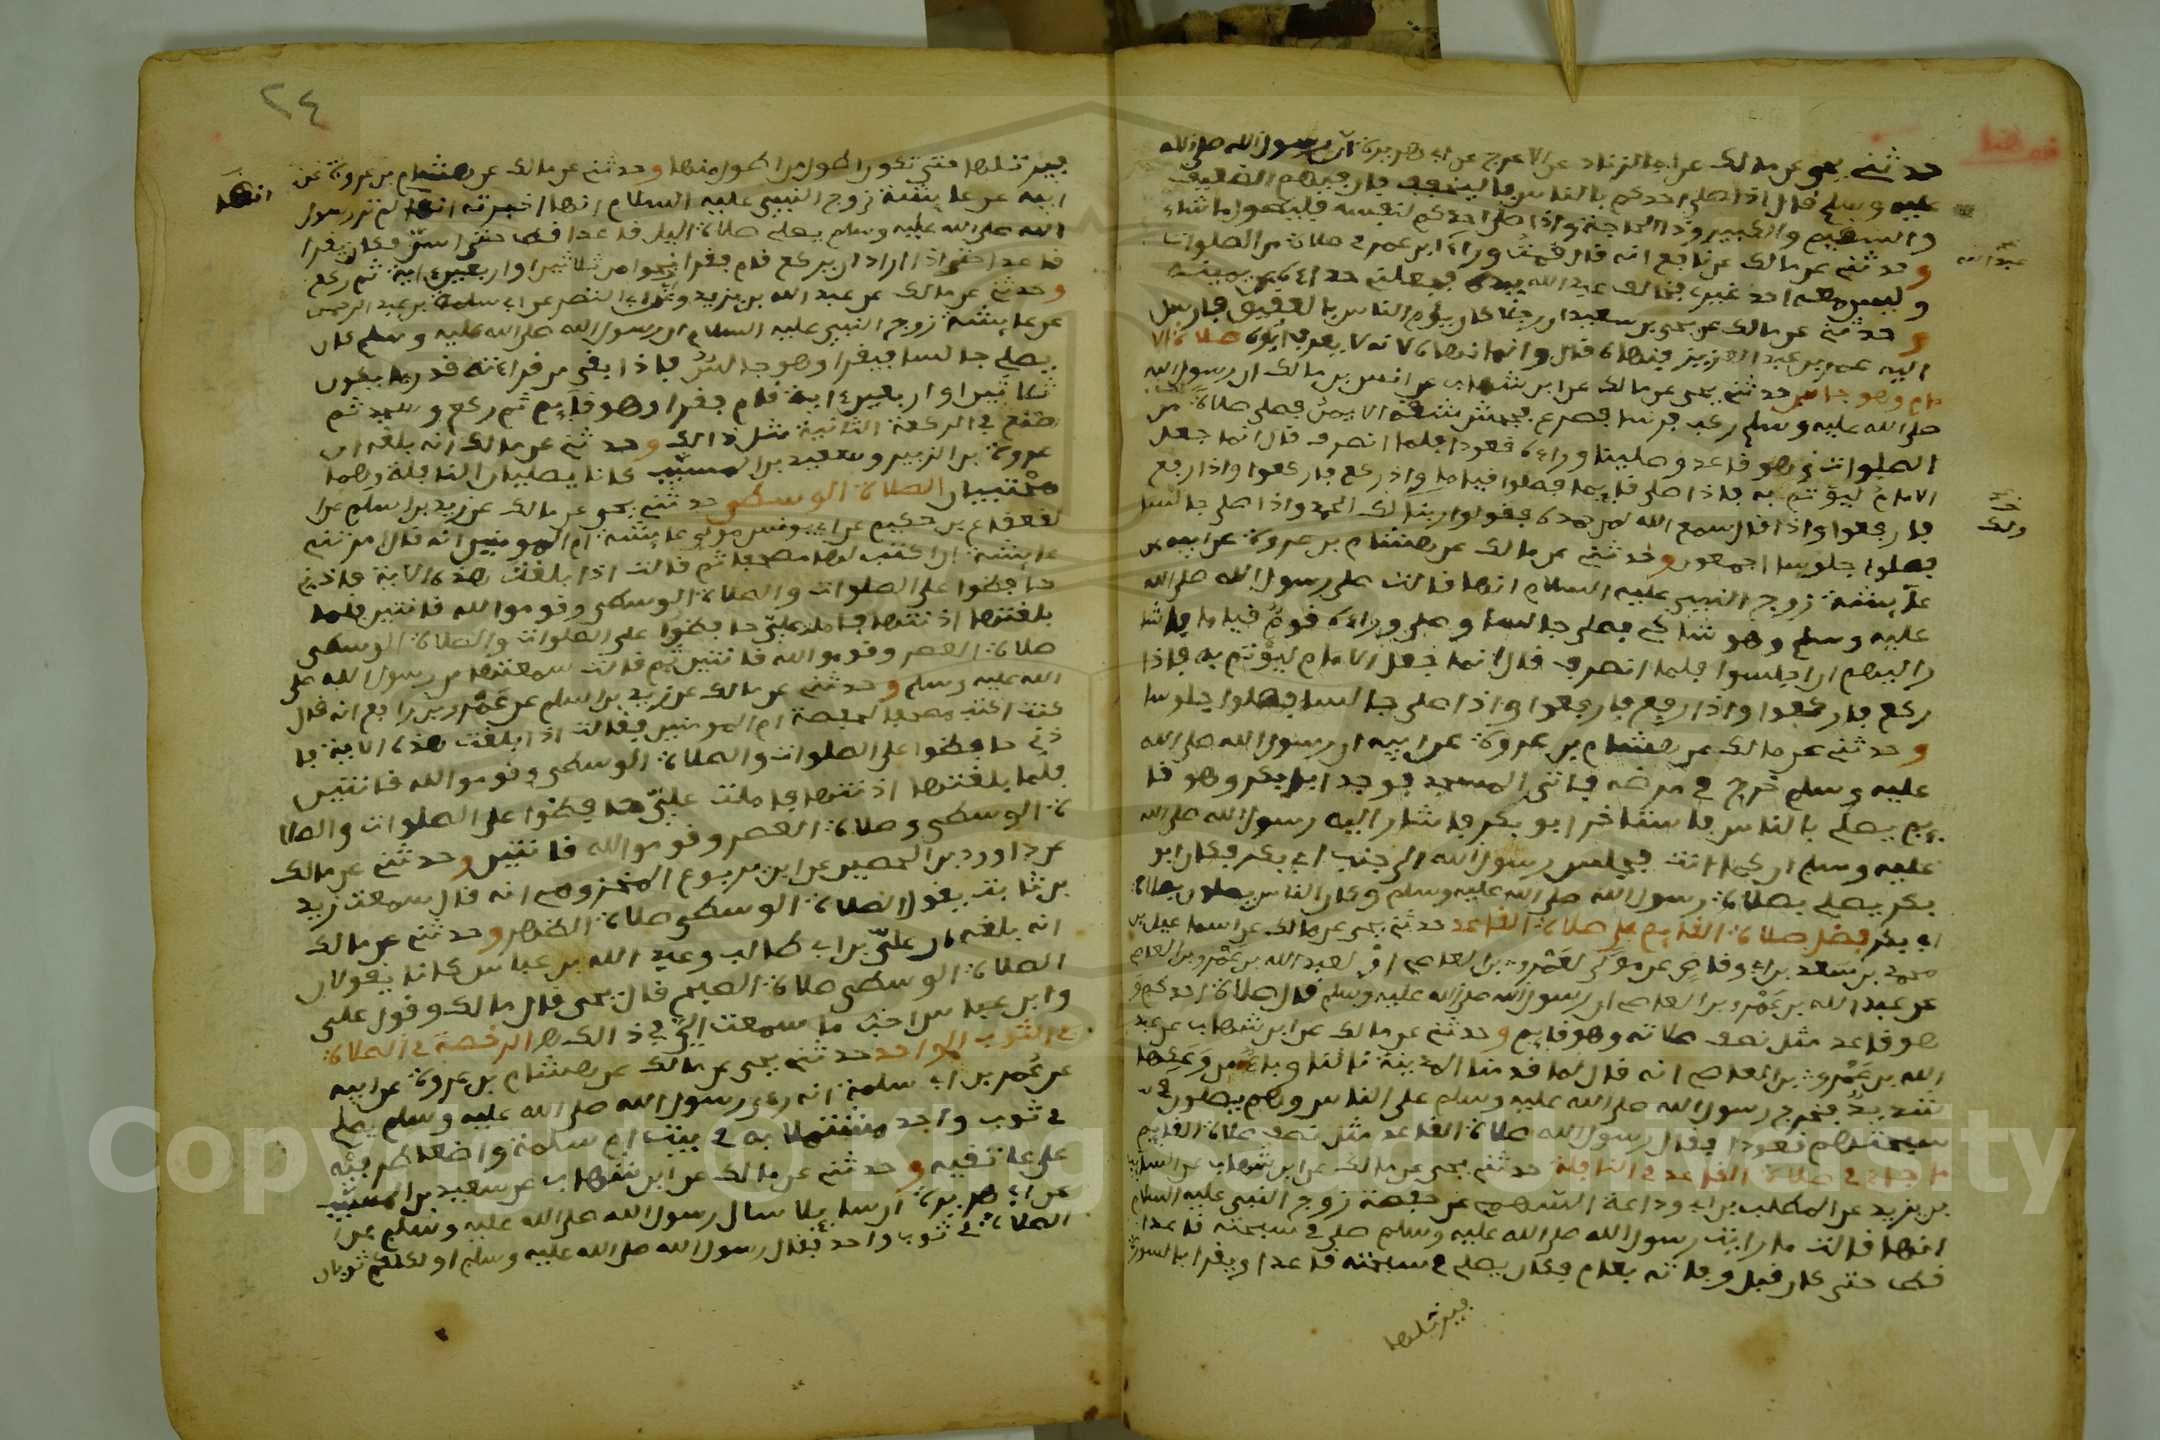 حدثني يحيى عن مالك عن ابي الزناد عن الاعرج عن ابي هريرة ان رسول الله صلى الله
عليه وسلم قال اذا صلى احدكم بالناس فليخفف فان فيهم الضعيف
والسقيم والكبير وذا الحاجة واذا صلى احدكم لنفسه فليطول ما شاء
وحدثني عن مالك عن نافع انه قال قمت وراء ابن عمر في صلاة من الصلوات
وليس معه احد غيري فخالف عبد الله بيده فجعلني حذاءه عن يمينه
وحدثني عن مالك عن يحيى بن سعيد ان رجلا كان يؤم الناس بالعقيق فارسل
اليه عمر بن عبد العزيز فنهاه قال وانما نهاه لانه لا يعرف ابوه صلاة الا
مام وهو جالس حدثني يحيى عن مالك عن ابن شهاب عن انس بن مالك ان رسول الله
صلى الله عليه وسلم ركب فرسا فصرع فجحش شقه الايمن فصلى صلاة من
الصلوات وهو قاعد وصلينا وراءه قعودا فلما انصرف قال انما جعل
الامام ليؤتم به فاذا صلى قايما فصلوا قياما واذا ركع فاركعوا واذا رفع
فارفعوا واذا قال سمع الله لمن حمده فقولوا ربنا لك الحمد واذا صلى جالسا
فصلوا جلوسا اجمعون وحدثني عن مالك عن هشام بن عروة عن ابيه عن
عايشة زوج النبي عليه السلام انها قالت صلى رسول الله صلى الله
عليه وسلم وهو شاكي فصلى جالسا وصلى وراءه قوم قياما فاشا
را اليهم ان اجلسوا فلما انصرف قال انما جعل الامام ليؤتم به فاذا
ركع فاركعوا واذا رفع فارفعوا واذا صلى جالسا فصلوا جلوسا
وحدثني عن مالك عن هشام بن عروة عن ابيه ان رسول الله صلى الله
عليه وسلم خرج في مرضه فاتى المسجد فوجد ابا بكر وهو قا
يم يصلي بالناس فاستاخر ابو بكر فاشار اليه رسول الله صلى الله
عليه وسلم ان كما انت فجلس رسول الله الى جنب ابي بكر فكان ابو
بكر يصلي بصلاة رسول الله صلى الله عليه وسلم وكان الناس يصلون بصلاة
ابي بكر فضل صلاة القايم على صلاة القاعد حدثني يحيى عن مالك عن اسماعيل بن
محمد بن سعد بن ابي وقاص عن مولى لعمرو بن العاص او لعبد الله بن عمرو بن العاص
عن عبد الله بن عمرو بن العاص ان رسول الله صلى الله عليه وسلم قال صلاة احدكم و
هو قاعد مثل نصف صلاته وهو قايم وحدثني عن مالك عن ابن شهاب عن عبد
الله بن عمرو بن العاص انه قال لما قدمنا المدينة نالنا وباء من وعكها
شديد فخرج رسول الله صلى الله عليه وسلم على الناس وهم يصلون في
سبحتهم قعودا فقال رسول الله صلاة القاعد مثل نصف صلاة القايم
ما جاء في صلاة القاعد في النافلة حدثني يحيى عن مالك عن ابن شهاب عن السايب
بن يزيد عن المطلب بن ابي وداعة السهمي عن حفصة زوج النبي عليه السلام
انها قالت ما رايت رسول الله صلى الله عليه وسلم صلى في سبحته قاعدا
قط حتى كان قبل وفاته بعام فكان يصلي في سبحته قاعدا ويقرا بالسورة
فيرتلها
عبد الله
ولك
٢٤
فيرتلها حتى تكون اطول من اطول منها وحدثني عن مالك عن هشام بن عروة عن
ابيه عن عايشة زوج النبي عليه السلام انها اخبرته انها لم تر رسول
الله صلى الله عليه وسلم يصلي صلاة الليل قاعدا قط حتى اسن فكان يقرا
قاعدا حتى اذا اراد ان يركع قام فقرا نحوا من ثلاثين او اربعين اية ثم ركع
وحدثني عن مالك عن عبد الله بن يزيد وعن ابي النضر عن ابي سلمة بن عبد الرحمن
عن عايشة زوج النبي عليه السلام ان رسول الله صلى الله عليه وسلم كان
يصلي جالسا فيقرا وهو جالس فاذا بقي من قراءته قدر ما يكون
ثلاثين او اربعين اية قام فقرا وهو قايم ثم ركع وسجد ثم
صنع في الركعة الثانية مثل ذالك وحدثني عن مالك انه بلغه ان
عروة بن الزبير وسعيد بن المسيب كانا يصليان النافلة وهما
محتبيان الصلاة الوسطى حدثني يحيى عن مالك عن زيد بن اسلم عن ا
لقعقاع بن حكيم عن ابي يونس مولى عايشة ام المومنين انه قال امرتني
عايشة ان اكتب لها مصحفا ثم قالت اذا بلغت هذه الاية فاذني
حافظوا على الصلوات والصلاة الوسطى وقوموا لله قانتين فلما
بلغتها اذنتها فاملت علي حافظوا على الصلوات والصلاة الوسطى
صلاة العصر وقوموا لله قانتين ثم قالت سمعتها من رسول الله صلى
الله عليه وسلم وحدثني عن مالك عن زيد بن اسلم عن عمرو بن رافع انه قال
كنت اكتب مصحفا لحفصة ام المومنين فقالت اذا بلغت هذه الاية فا
ذني حافظوا على الصلوات والصلاة الوسطى وقوموا لله قانتين
فلما بلغتها اذنتها فاملت علي حافظوا على الصلوات والصلا
ة الوسطى وصلاة العصر وقوموا لله قانتين وحدثني عن مالك
عن داوود بن الحصين عن ابن يربوع المخزومي انه قال سمعت زيد
بن ثابت يقول الصلاة الوسطى صلاة الظهر وحدثني عن مالك
انه بلغه ان علي بن ابي طالب وعبد الله بن عباس كانا يقولان
الصلاة الوسطى صلاة الصبح قال يحيى قال مالك وقول علي
وابن عباس احب ما سمعت الي في ذالك الرخصة في الصلاة
في الثوب الواحد حدثني يحيى عن مالك عن هشام بن عروة عن ابيه
عن عمر بن ابي سلمة انه رءى رسول الله صلى الله عليه وسلم يصلي
في ثوب واحد مشتملا به في بيت ام سلمة واضعا طرفيه
على عاتقيه وحدثني عن مالك عن ابن شهاب عن سعيد بن المسيب
عن ابي هريرة ان سايلا سال رسول الله صلى الله عليه وسلم عن ا
لصلاة في ثوب واحد فقال رسول الله صلى الله عليه وسلم او لكلكم ثوبان
Copyright © King Saud University